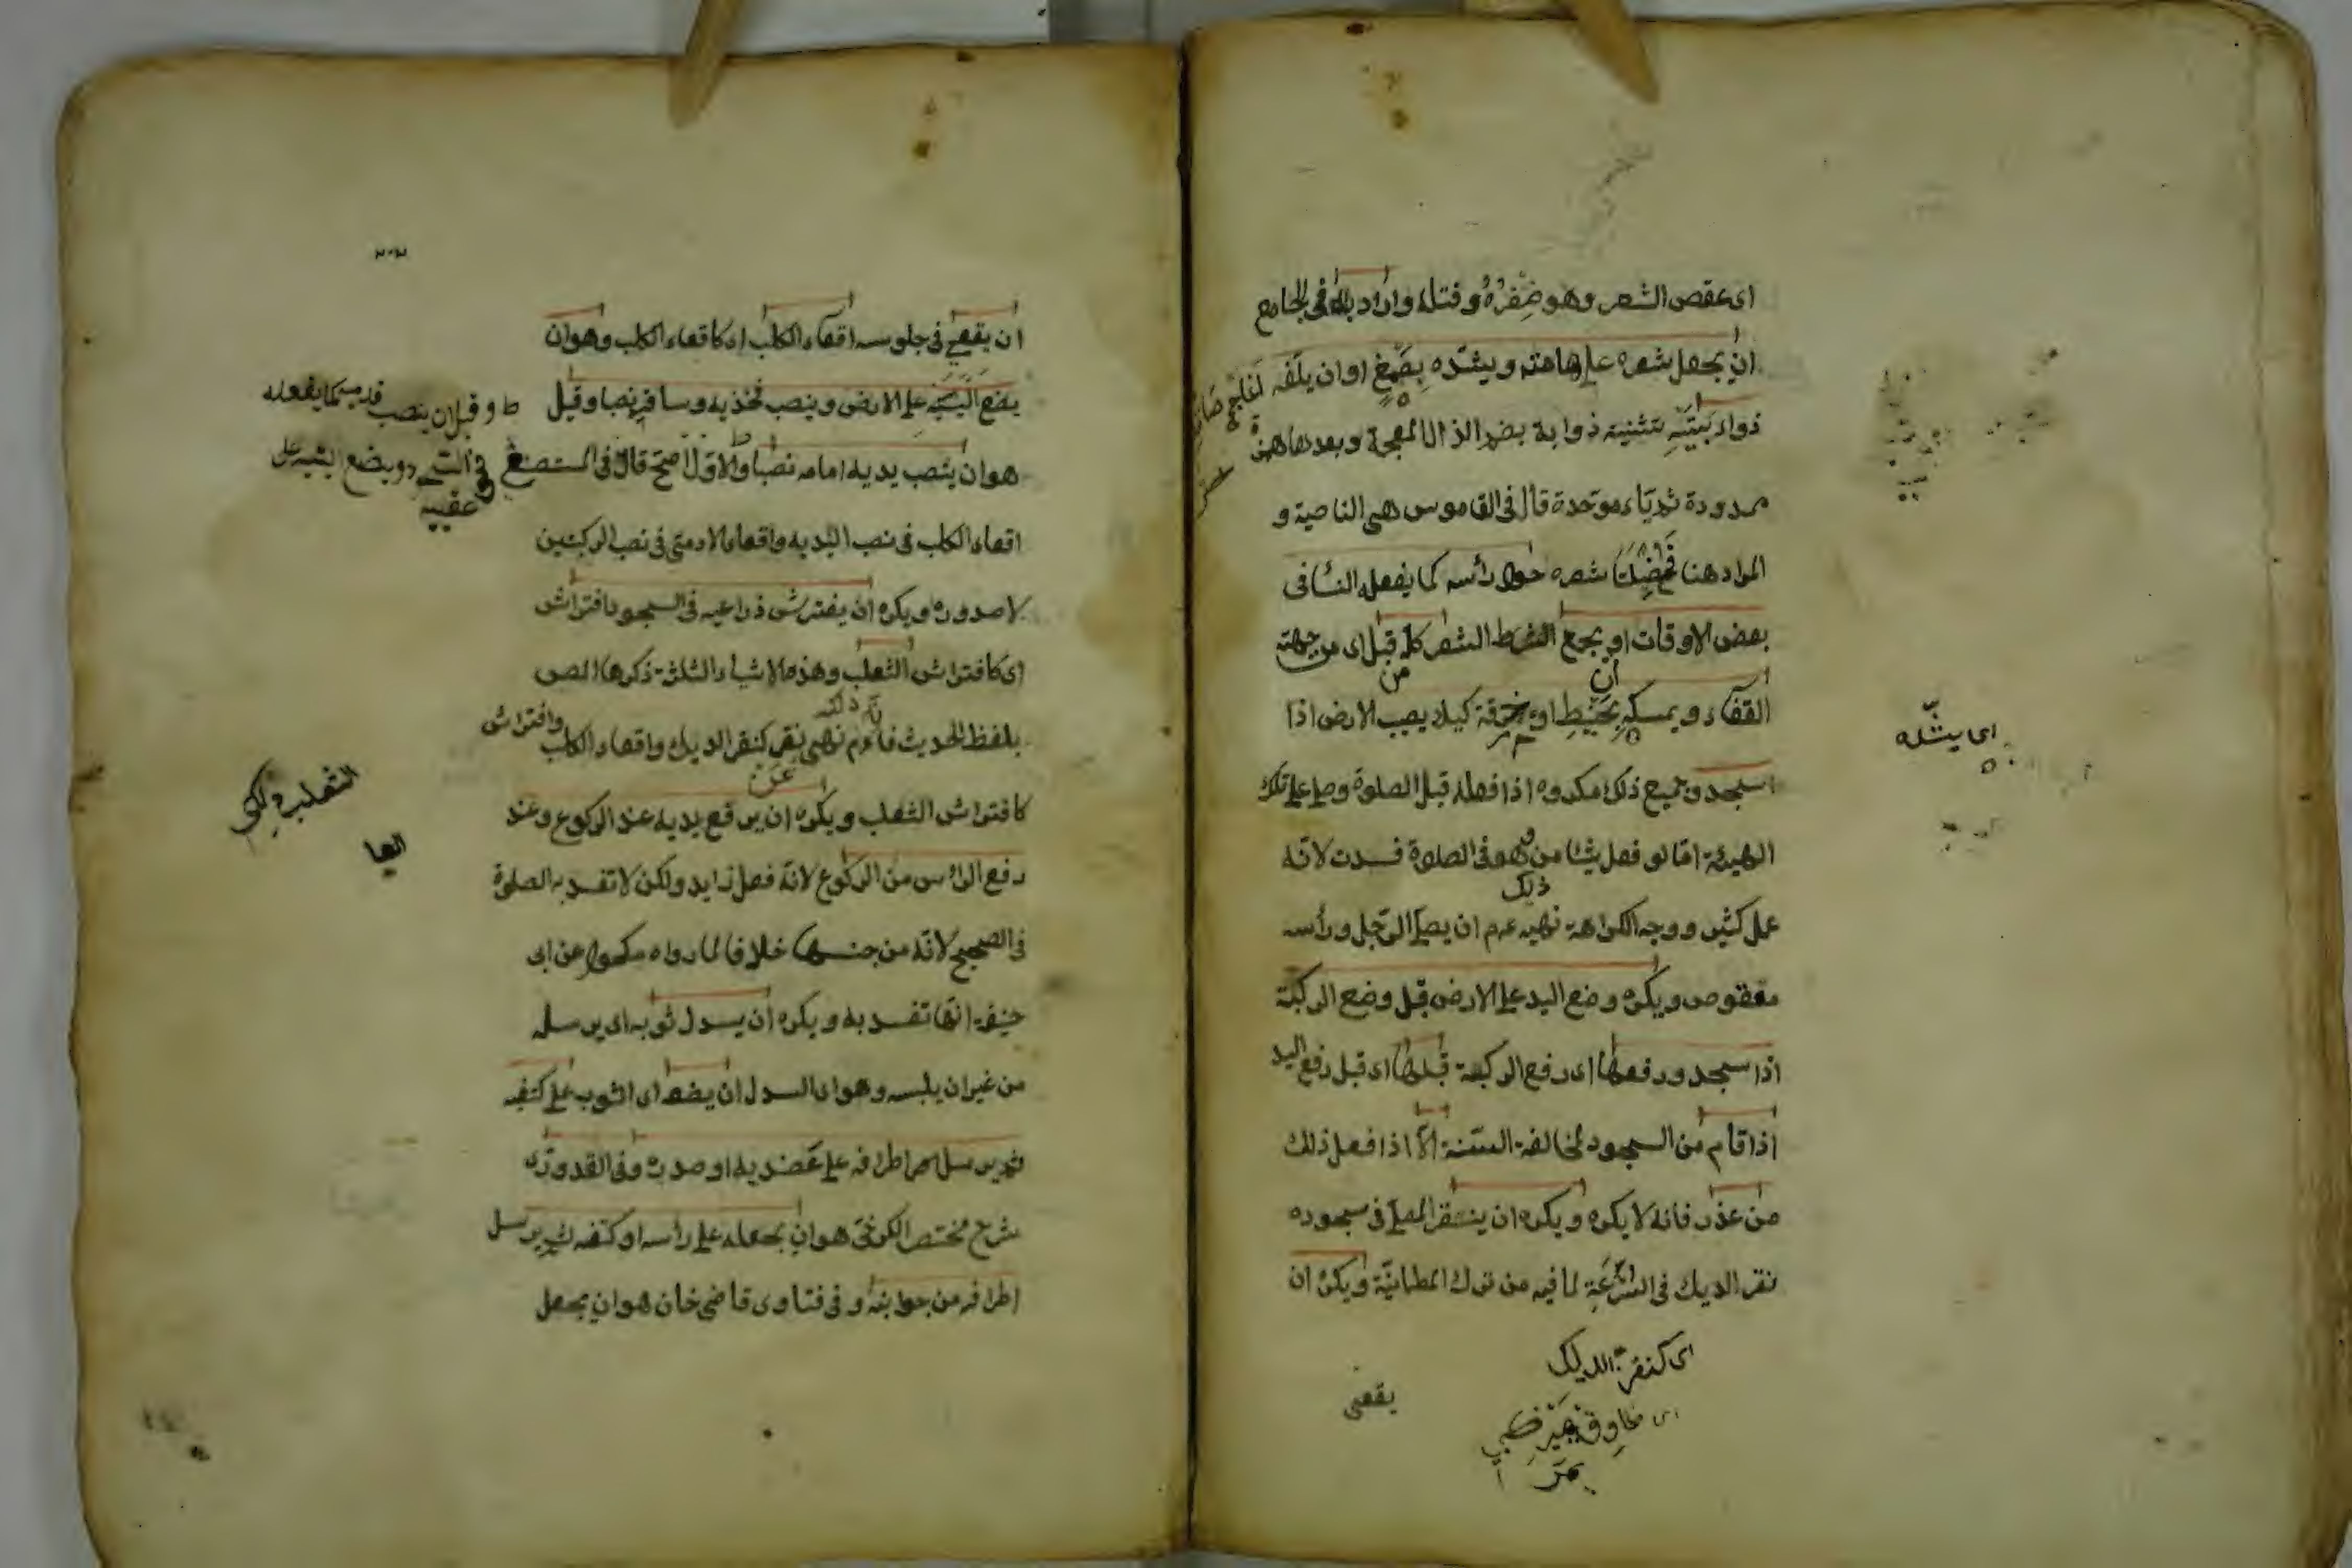 اى عقص الشعر وهو ضفره وفتله واراد به فى الجامع
ان يجعل شعره على هامته ويشده بصمغ او ان يلف
ذوابتيه تثنية ذوابة بضم الذال المعجمة وبعدها همزة
ممدودة ثم باء موحدة قال فى القاموس هى الناصية و
المراد هنا شعره حول رأسه كما يفعله النسا فى
بعض الاوقات او يجمع الشعر كله قبل اى من جهة
القفاء ويمسكه بخيط او خرقة كيلا يصيب الارض اذا
سجد وجميع ذلك مكروه اذا فعله قبل الصلوة وصلى على تلك
الهيئة امّا لو فعل شيئا من وهو فى الصلوة فسدت لانّه
ذلك
عمل كثير ووجه الكراهة نهيه عم ان يصلى الرّجل ورأسه
معقوص ويكره وضع اليد على الارض قبل وضع الركبة
اذا سجد ورفعها اى رفع الركبة قبلها اى قبل رفع اليد
اذا قام من السجود لمخالفة السّنة الّا اذا فعل ذلك
من عذر فانه لا يكره ويكره ان ينقر المصلى فى سجوده
نقر الديك فى السّرعة لما فيه من ترك الطمانيّة ويكره ان
اى كنقر الديك
يقعى
اى يشده
٢٠٢
ان يقعى فى جلوسه اقعاء الكلب اى كاقعاء الكلب وهو ان
يضع اليتيه على الارض وينصب فخذيه وساقيه نصبا وقيل
ط وقيل ان ينصب قدميه كما يفعله
هو ان ينصب يديه امامه نصبا والاول اصح قال فى المستصفى
فى التشهد ويضع اليتيه على
عقبيه
اقعاء الكلب فى نصب اليديه واقعاء الادمى فى نصب الركبتين
لا صدوره ويكره ان يفترش ذراعيه فى السجود افتراش
اى كافتراش الثعلب وهذه الاشياء الثلثة ذكرها المص
بلفظ الحديث فانه عم نهى نقر كنقر الديك واقعاء الكلب وافتراش
عن
كافتراش الثعلب ويكره ان يرفع يديه عند الركوع وعند
رفع الراس من الركوع لانّه فعل زايد ولكن لا تفسد به الصلوة
فى الصحيح لانّه من جنسها خلافا لما رواه مكحول عن ابى
حنيفة انّها تفسد به ويكره ان يسدل ثوبه اى يرسله
من غير ان يلبسه وهو اى السدل ان يضعه اى الثوب على كتفه
ثم يرسل اطرافه على عضديه او صدره وفى القدورى
شرح مختصر الكرخى هو ان يجعله على رأسه او كتفه ثم يرسل
اطرافه من جوانبه وفى فتاوى قاضى خان هو ان يجعل